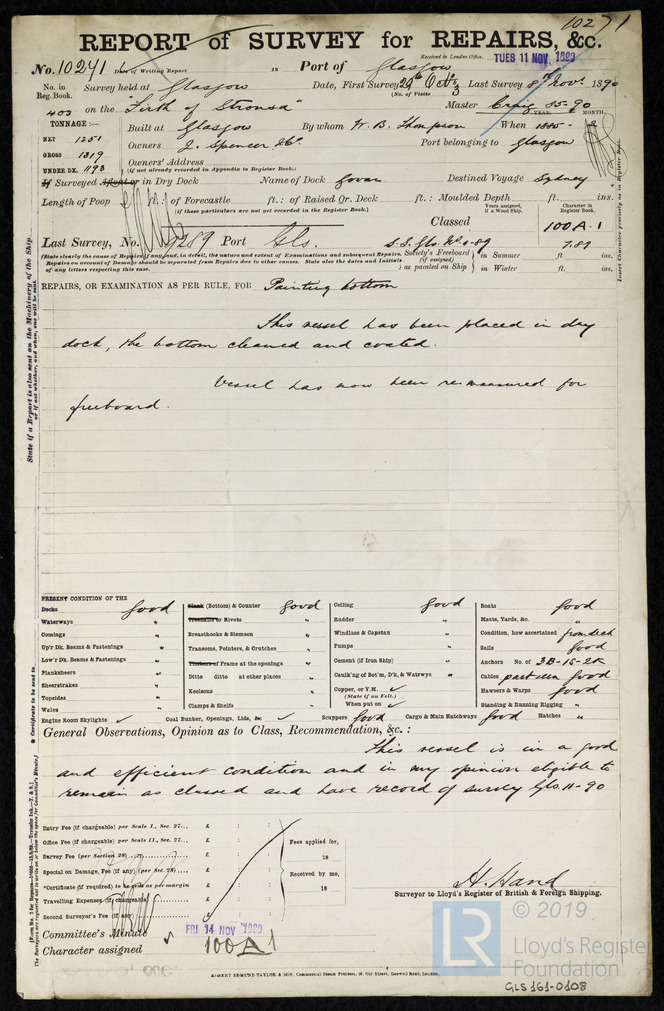 10271
REPORT of SURVEY for REPAIRS, &c.
Received in London Office. TUES 11 NOV. 1890
No. 10271 Date of Writing Report 18 Port of Glasgow
No. in Reg. Book. Survey held at Glasgow Date, First Survey 29th Octr Last Survey 8th Novr. 1890
(No. of Visits 3
403 on the "Firth of Stronsa" Master Craig 85-90
TONNAGE:— YEAR. MONTH.
NET 1251 Built at Glasgow By whom W. B. Thompson When 1885-
GROSS 1319 Owners J. Spencer & Co. Port belonging to Glasgow
UNDER DK. 1193 Owners' Address
(if not already recorded in Appendix to Register Book.)
If Surveyed Afloat or in Dry Dock Name of Dock Govan Destined Voyage Sydney
Length of Poop ft.: of Forecastle ft.: of Raised Qr. Deck ft.: Moulded Depth ft. ins.
(if these particulars are not yet recorded in the Register Book.)
Years assigned, if a Wood Ship. Character in Register Book.
Classed 100A.1
Last Survey, No. 9289 Port Gls. S.S. Gls. No. 1-89 7.89
(State clearly the cause of Repairs if any, and, in detail, the nature and extent of Examinations and subsequent Repairs.
Repairs on account of Damage should be separated from Repairs due to other causes. State also the dates and Initials
of any letters respecting this case.)
Society's Freeboard (if assigned) as painted on Ship } in Summer ft. ins.
in Winter ft. ins.
REPAIRS, OR EXAMINATION AS PER RULE, FOR Painting bottom
This vessel has been placed in dry
dock, the bottom cleaned and coated.
Vessel has now been re-measured for
freeboard.
State if a Report is also sent on the Machinery of the Ship
or if not whether, and when, one will be sent.
Insert Character precisely as in Register Book.
PRESENT CONDITION OF THE
Decks Good
Waterways "
Comings "
Up'r Dk. Beams & Fastenings "
Low'r Dk. Beams & Fastenings "
Planksheers "
Sheerstrakes "
Topsides "
Wales "
Engine Room Skylights ✓
Plank (Bottom) & Counter Good
Treenails or Rivets "
Breasthooks & Stemson "
Transoms, Pointers, & Crutches "
Timbers of Frame at the openings "
Ditto ditto at other places "
Keelsons "
Clamps & Shelfs "
Coal Bunker, Openings, Lids, &c ✓
Ceiling Good
Rudder "
Windlass & Capstan "
Pumps "
Cement (if Iron Ship) "
Caulk'ng of Bot'm, D'k, & Watrwys "
Copper, or Y.M. ✓
(State if on Felt.)
When put on ✓
Scuppers Good Cargo & Main Hatchways Good Hatches "
Boats Good
Masts, Yards, &c. "
Condition, how ascertained from deck
Sails Good
Anchors No. of 3B-1S-2K
Cables part seen good
Hawsers & Warps Good
Standing & Running Rigging "
General Observations, Opinion as to Class, Recommendation, &c.:
This vessel is in a good
and efficient condition and in my opinion eligible to
remain as classed and have record of survey Gls. 11-90
Entry Fee (if chargeable) per Scale I., Sec. 27... £
Office Fee (if chargeable) per Scale II., Sec. 27... £
Survey Fee (per Section 28) £
Special on Damage, Fee (if any) (per Sec. 28) £
*Certificate (if required) to be sent as per margin
Travelling Expenses, (if chargeable) £
Second Surveyor's Fee (if any) £
Fees applied for,
18
Received by me,
18
H. Hand
Surveyor to Lloyd's Register of British & Foreign Shipping.
Committee's Minute FRI 14 NOV 1890
Character assigned 100A1
* Certificate to be sent to
ROBERT EDMUND TAYLOR & SON, Commercial Steam Printers, 19, Old Street, Goswell Road, London.
LR © 2019
Lloyd's Register
Foundation
GLS161-0108